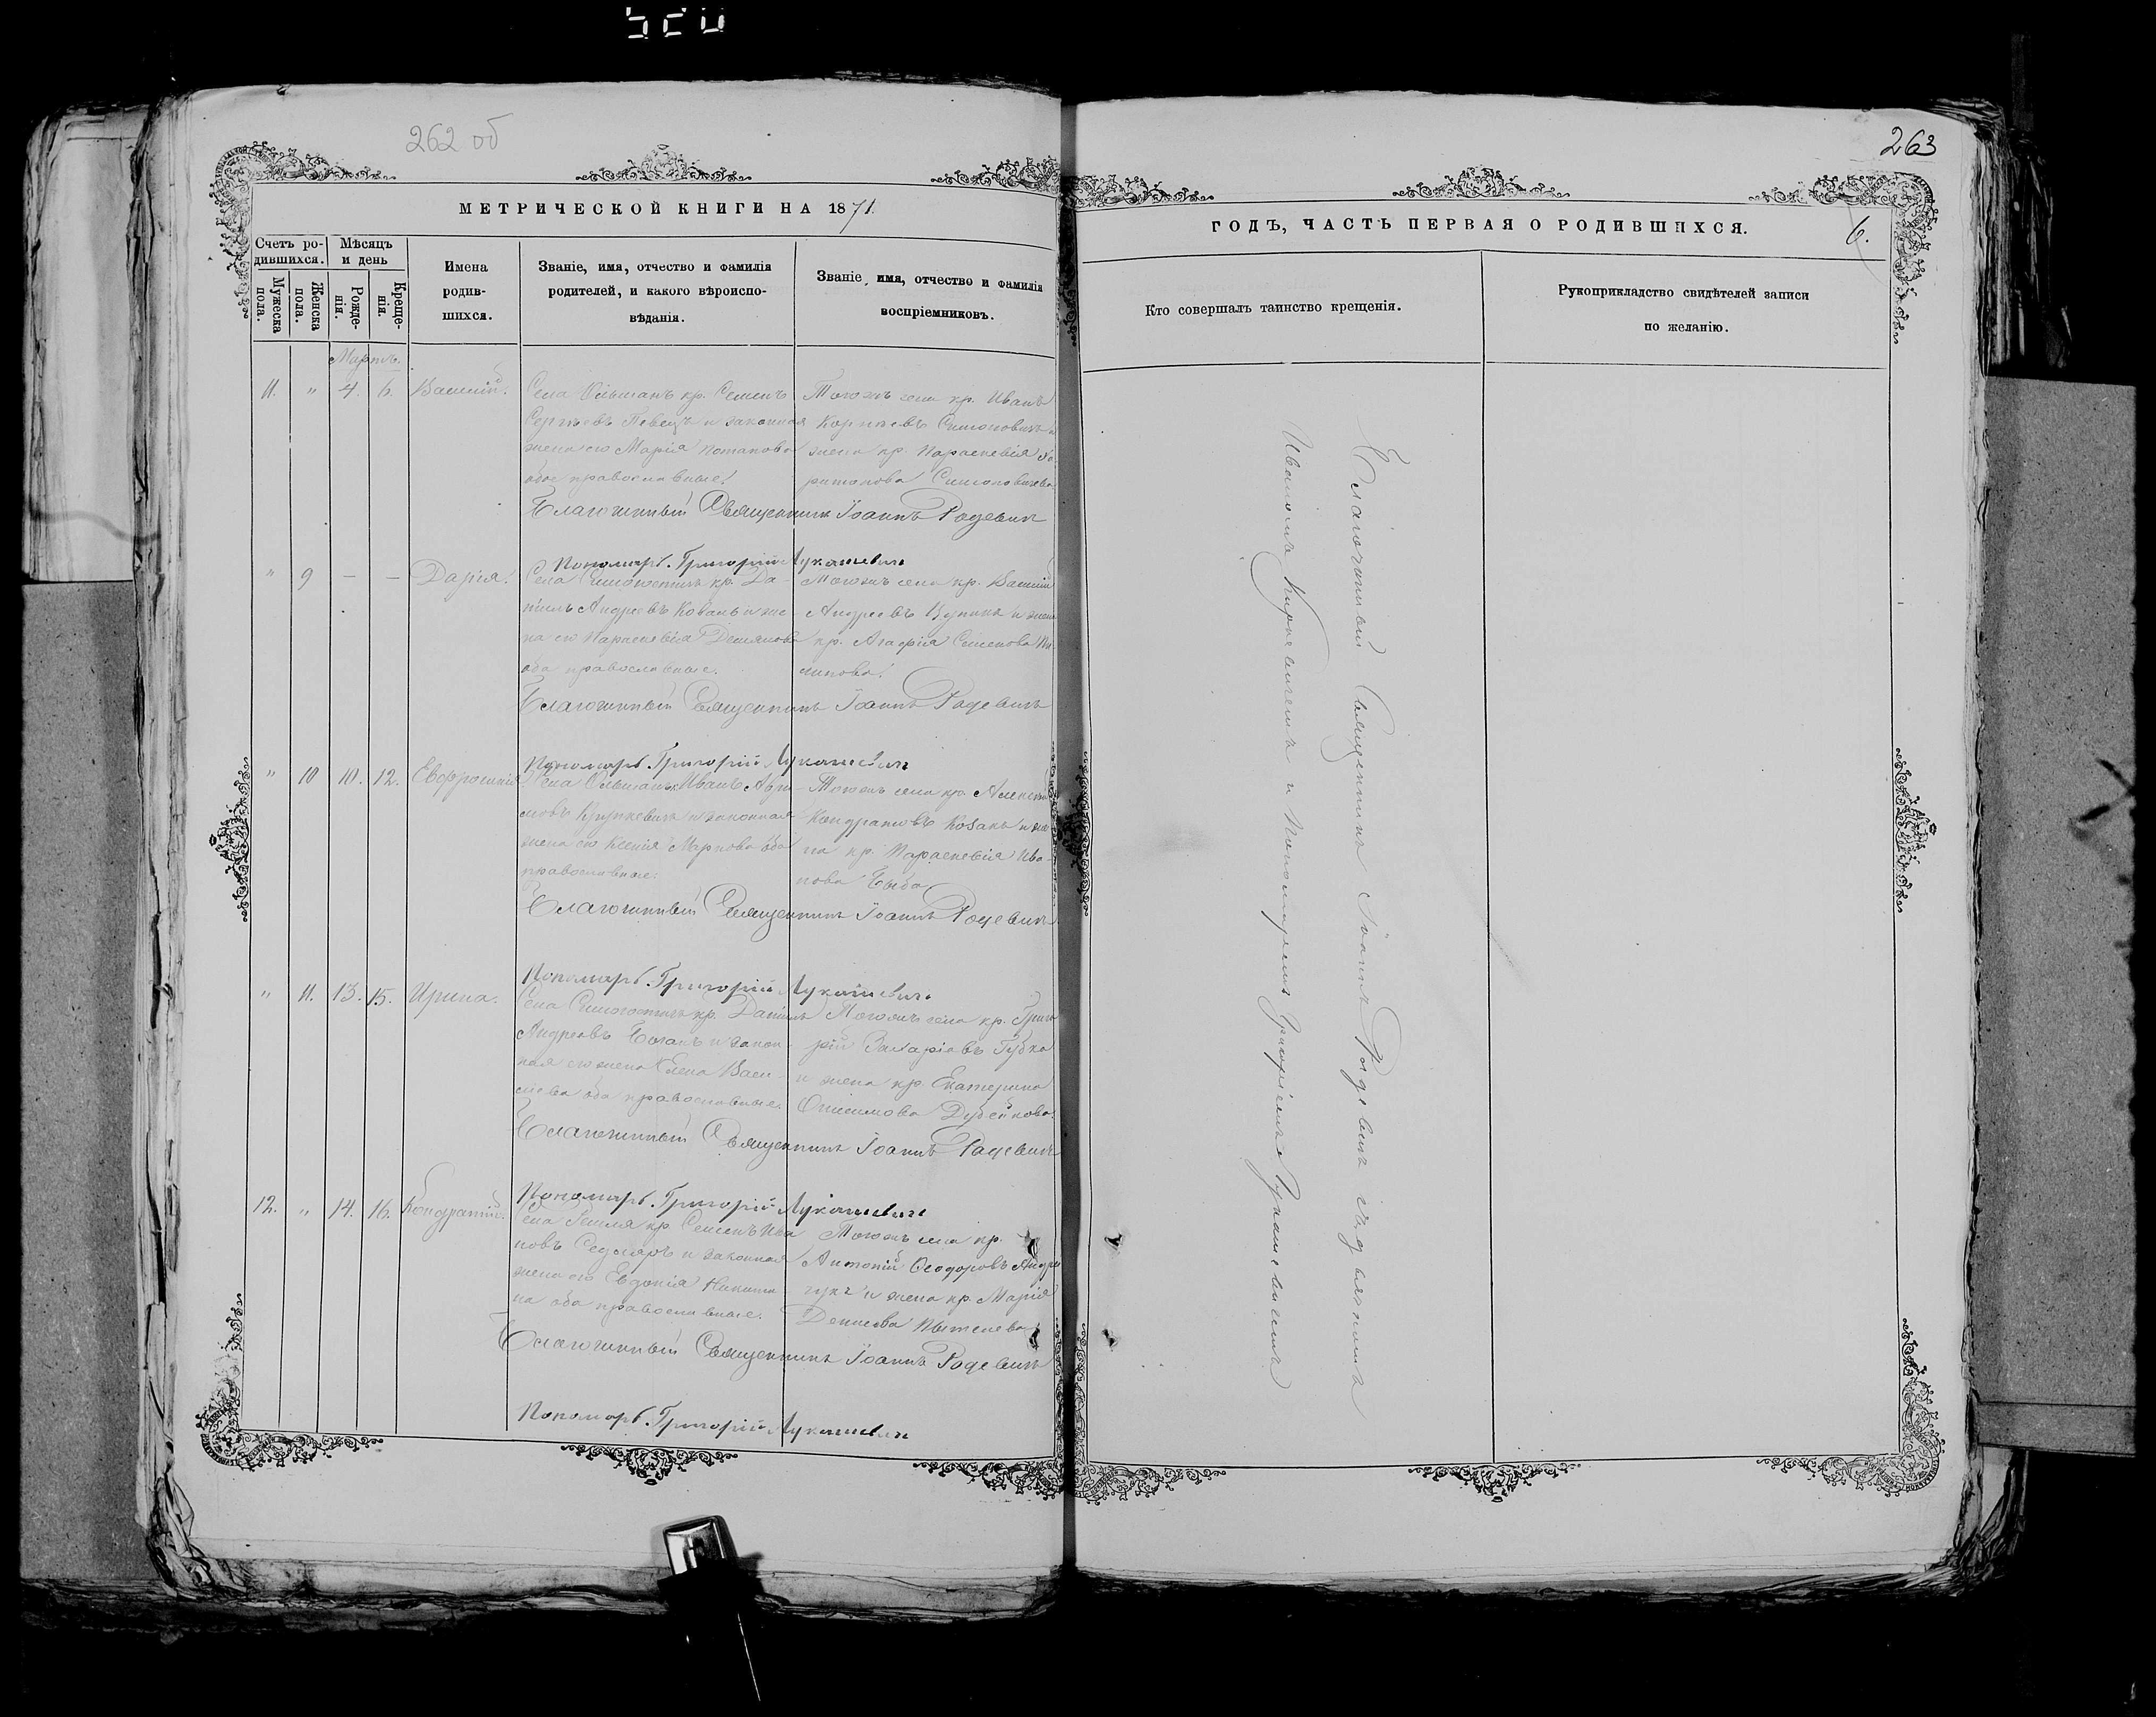 262 об
263
МЕТРИЧЕСКОЙ КНИГИ НА 1871.
ГОДЪ, ЧАСТЬ ПЕРВАЯ О РОДИВШИХСЯ.
6.
Счетъ ро-
дившихся.
Мѣсяцъ
и день
Мужеска
пола.
Женска
пола.
Рожде-
нія.
Креще-
нія.
Имена
родив-
шихся.
Званіе, имя, отчество и фамилія
родителей, и какого вѣроиспо-
вѣданія.
Званіе, имя, отчество и фамилія
воспріемниковъ.
Кто совершалъ таинство крещенія.
Рукоприкладство свидѣтелей записи
по желанію.
Мартъ.
11. " 4. 6. Василій.
Села Ольшанъ кр. Семенъ
Сергѣевъ Певецъ и законная
жена его Марія Потапова
обое православные.
Тогожъ села кр. Иванъ
Корнѣевъ Симоновичъ и
жена кр. Параскевія Ха-
ритонова Симоновичева.
Благочинный Священникъ Іоаннъ Родевичъ
Пономарь Григорій Лукашевичъ
" 9 — — Дарія.
Села кр. Да-
ніилъ Андреевъ Коваль и же-
на его Параскевія Демянова
оба православные.
Тогожъ села кр. Василій
Андреевъ и жена
кр. Агафія Семенова
Благочинный Священникъ Іоаннъ Родевичъ
Пономарь Григорій Лукашевичъ
" 10 10. 12. Евфросинія
Села Ольшанъ Иванъ
и законная
жена его Ксенія Маркова оба
православные.
Тогожъ села кр. Алексѣй
Кондратовъ Козакъ и же-
на кр. Параскевія Ива-
нова
Благочинный Священникъ Іоаннъ Родевичъ
Пономарь Григорій Лукашевичъ
" 11. 13. 15. Ирина.
Села кр. Даніилъ
Андреевъ и закон-
ная его жена Елена Васи-
льева оба православные.
Тогожъ села кр. Григо-
рій Захаріевъ Губка
и жена кр. Екатерина
Онисимова
Благочинный Священникъ Іоаннъ Родевичъ
Пономарь Григорій Лукашевичъ
12. " 14. 16. Кондратій.
Села кр. Семенъ Ива-
новъ Седляръ и законная
жена его Евдокія Никити-
на оба православные.
Тогожъ села кр.
Антоній Ѳеодоровъ
и жена кр. Марія
Денисова
Благочинный Священникъ Іоаннъ Родевичъ
Пономарь Григорій Лукашевичъ
Благочинный Священникъ Іоаннъ Родевичъ
и Пономаремъ Григоріемъ Лукашевичемъ